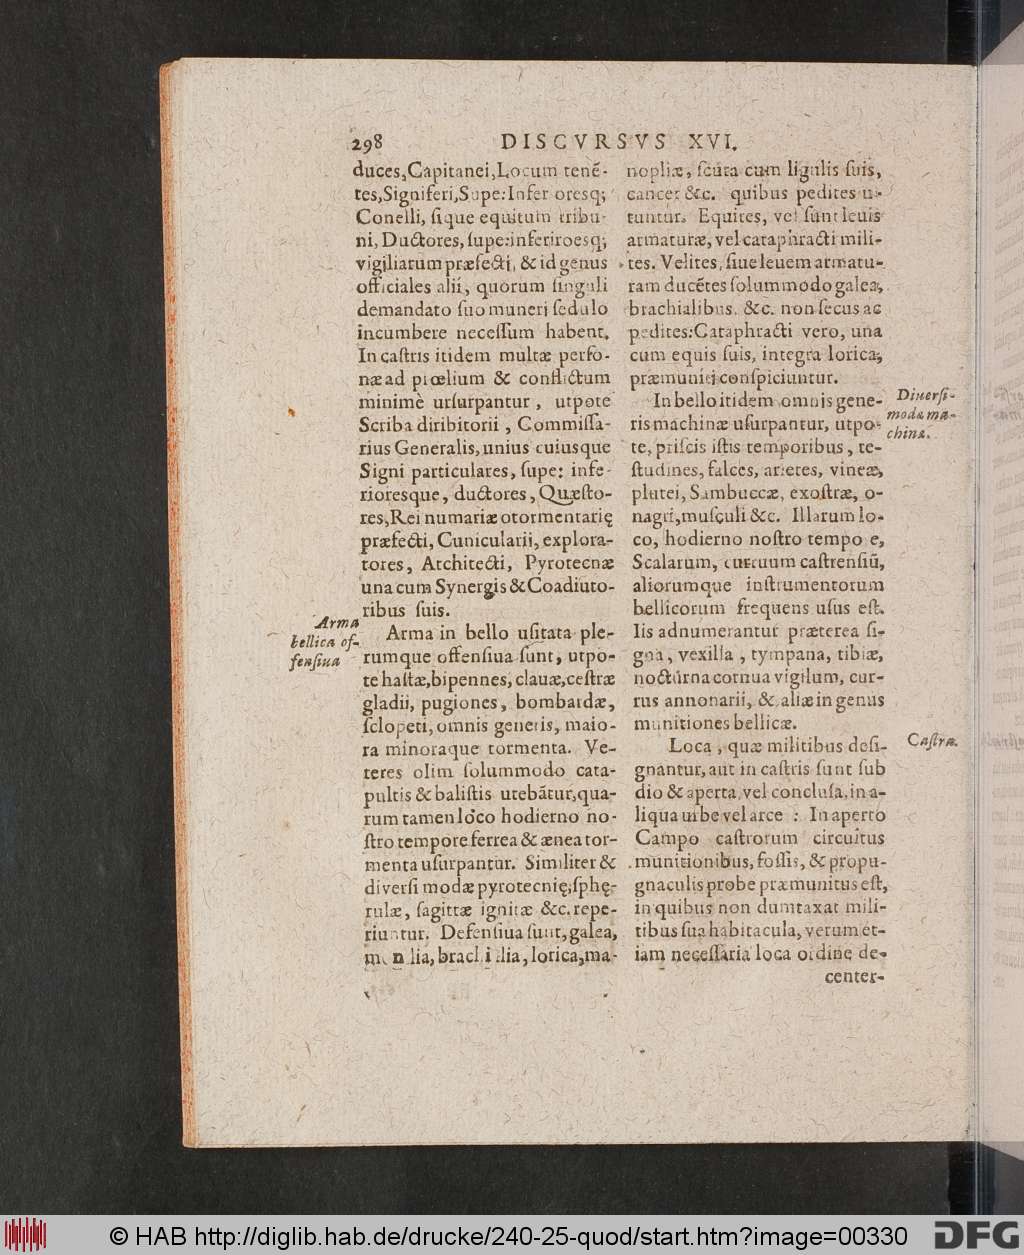 298 DISCVRSVS XVI.
duces, Capitanei, Locum tenẽ-
tes, Signiferi, Supe: Infer oresq;
Conelli, ſique equitum tribu-
ni, Ductores, ſupe: inferiroesq;
vigiliarum præfecti, & id genus
officiales alii, quorum ſinguli
demandato ſuo muneri ſedulo
incumbere neceſſum habent.
In caſtris itidem multæ perſo-
næ ad prœlium & conflictum
minimè urſurpantur, utpote
Scriba diribitorii, Commiſſa-
rius Generalis, unius cuiusque
Signi particulares, ſupe: infe-
rioresque, ductores, Quæſto-
res, Rei numariæ otormentarię
præfecti, Cunicularii, explora-
tores, Architecti, Pyrotecnæ
una cum Synergis & Coadiuto-
ribus ſuis.
Arma
bellica of-
fenſiua
Arma in bello uſitata ple-
rumque offenſiua ſunt, utpo-
te haſtæ, bipennes, clauæ, ceſtræ
gladii, pugiones, bombardæ,
ſclopeti, omnis generis, maio-
ra minoraque tormenta. Ve-
teres olim ſolummodo cata-
pultis & baliſtis utebãtur, qua-
rum tamen loco hodierno no-
ſtro tempore ferrea & ænea tor-
menta uſurpantur. Similiter &
diverſi modæ pyrotecnię, ſphę-
rulæ, ſagittæ ignitæ &c. repe-
riuntur. Defenſiua ſunt, galea,
lorica, ma-
nopliæ, ſcuta cum ligulis ſuis,
cancer &c. quibus pedites u-
tuntur. Equites, vel ſunt leuis
armaturæ, vel cataphracti mili-
tes. Velites, ſiue leuem armatu-
ram ducẽtes ſolummodo galea,
brachialibus. &c. non ſecus ac
pedites: Cataphracti vero, una
cum equis ſuis, integra lorica,
præmuniti conſpiciuntur.
Diuerſi-
modæ ma-
chinæ.
In bello itidem omnis gene-
ris machinæ uſurpantur, utpo-
te, priſcis iſtis temporibus, te-
ſtudines, falces, arietes, vineæ,
plutei, Sambuccæ, exoſtræ, o-
nagri, muſculi &c. Illarum lo-
co, hodierno noſtro tempo e,
Scalarum, curruum caſtrenſiũ,
aliorumque inſtrumentorum
bellicorum frequens uſus eſt.
Iis adnumerantur præterea ſi-
gna, vexilla, tympana, tibiæ,
nocturna cornua vigilum, cur-
rus annonarii, & aliæ in genus
munitiones bellicæ.
Caſtra.
Loca, quæ militibus deſi-
gnantur, aut in caſtris ſunt ſub
dio & aperta, vel concluſa, in a-
liqua urbe vel arce : In aperto
Campo caſtrorum circuitus
munitionibus, foſſis, & propu-
gnaculis probe præmunitus eſt,
in quibus non dumtaxat mili-
tibus ſua habitacula, verum et-
iam neceſſaria loca ordine de-
center-
© HAB http://diglib.hab.de/drucke/240-25-quod/start.htm?image=00330
DFG